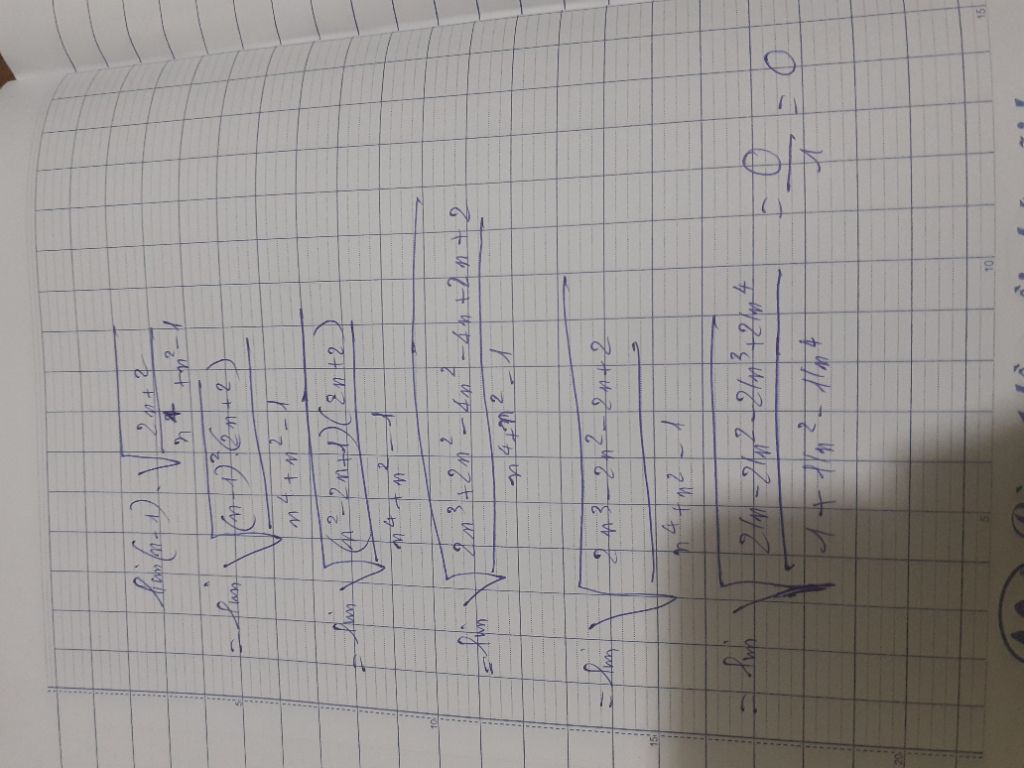 lim(n-1).√(2n+2)/(n⁴+n²-1)
=lim √((n-1)²(2n+2))/(n⁴+n²-1)
=lim √((n²-2n+1)(2n+2))/(n⁴+n²-1)
=lim √(2n³+2n²-4n²-4n+2n+2)/(n⁴+n²-1)
=lim √(2n³-2n²-2n+2)/(n⁴+n²-1)
=lim √(2/n-2/n²-2/n³+2/n⁴)/(1+1/n²-1/n⁴) = 0/1 = 0
5
10
15
20
5
10
15